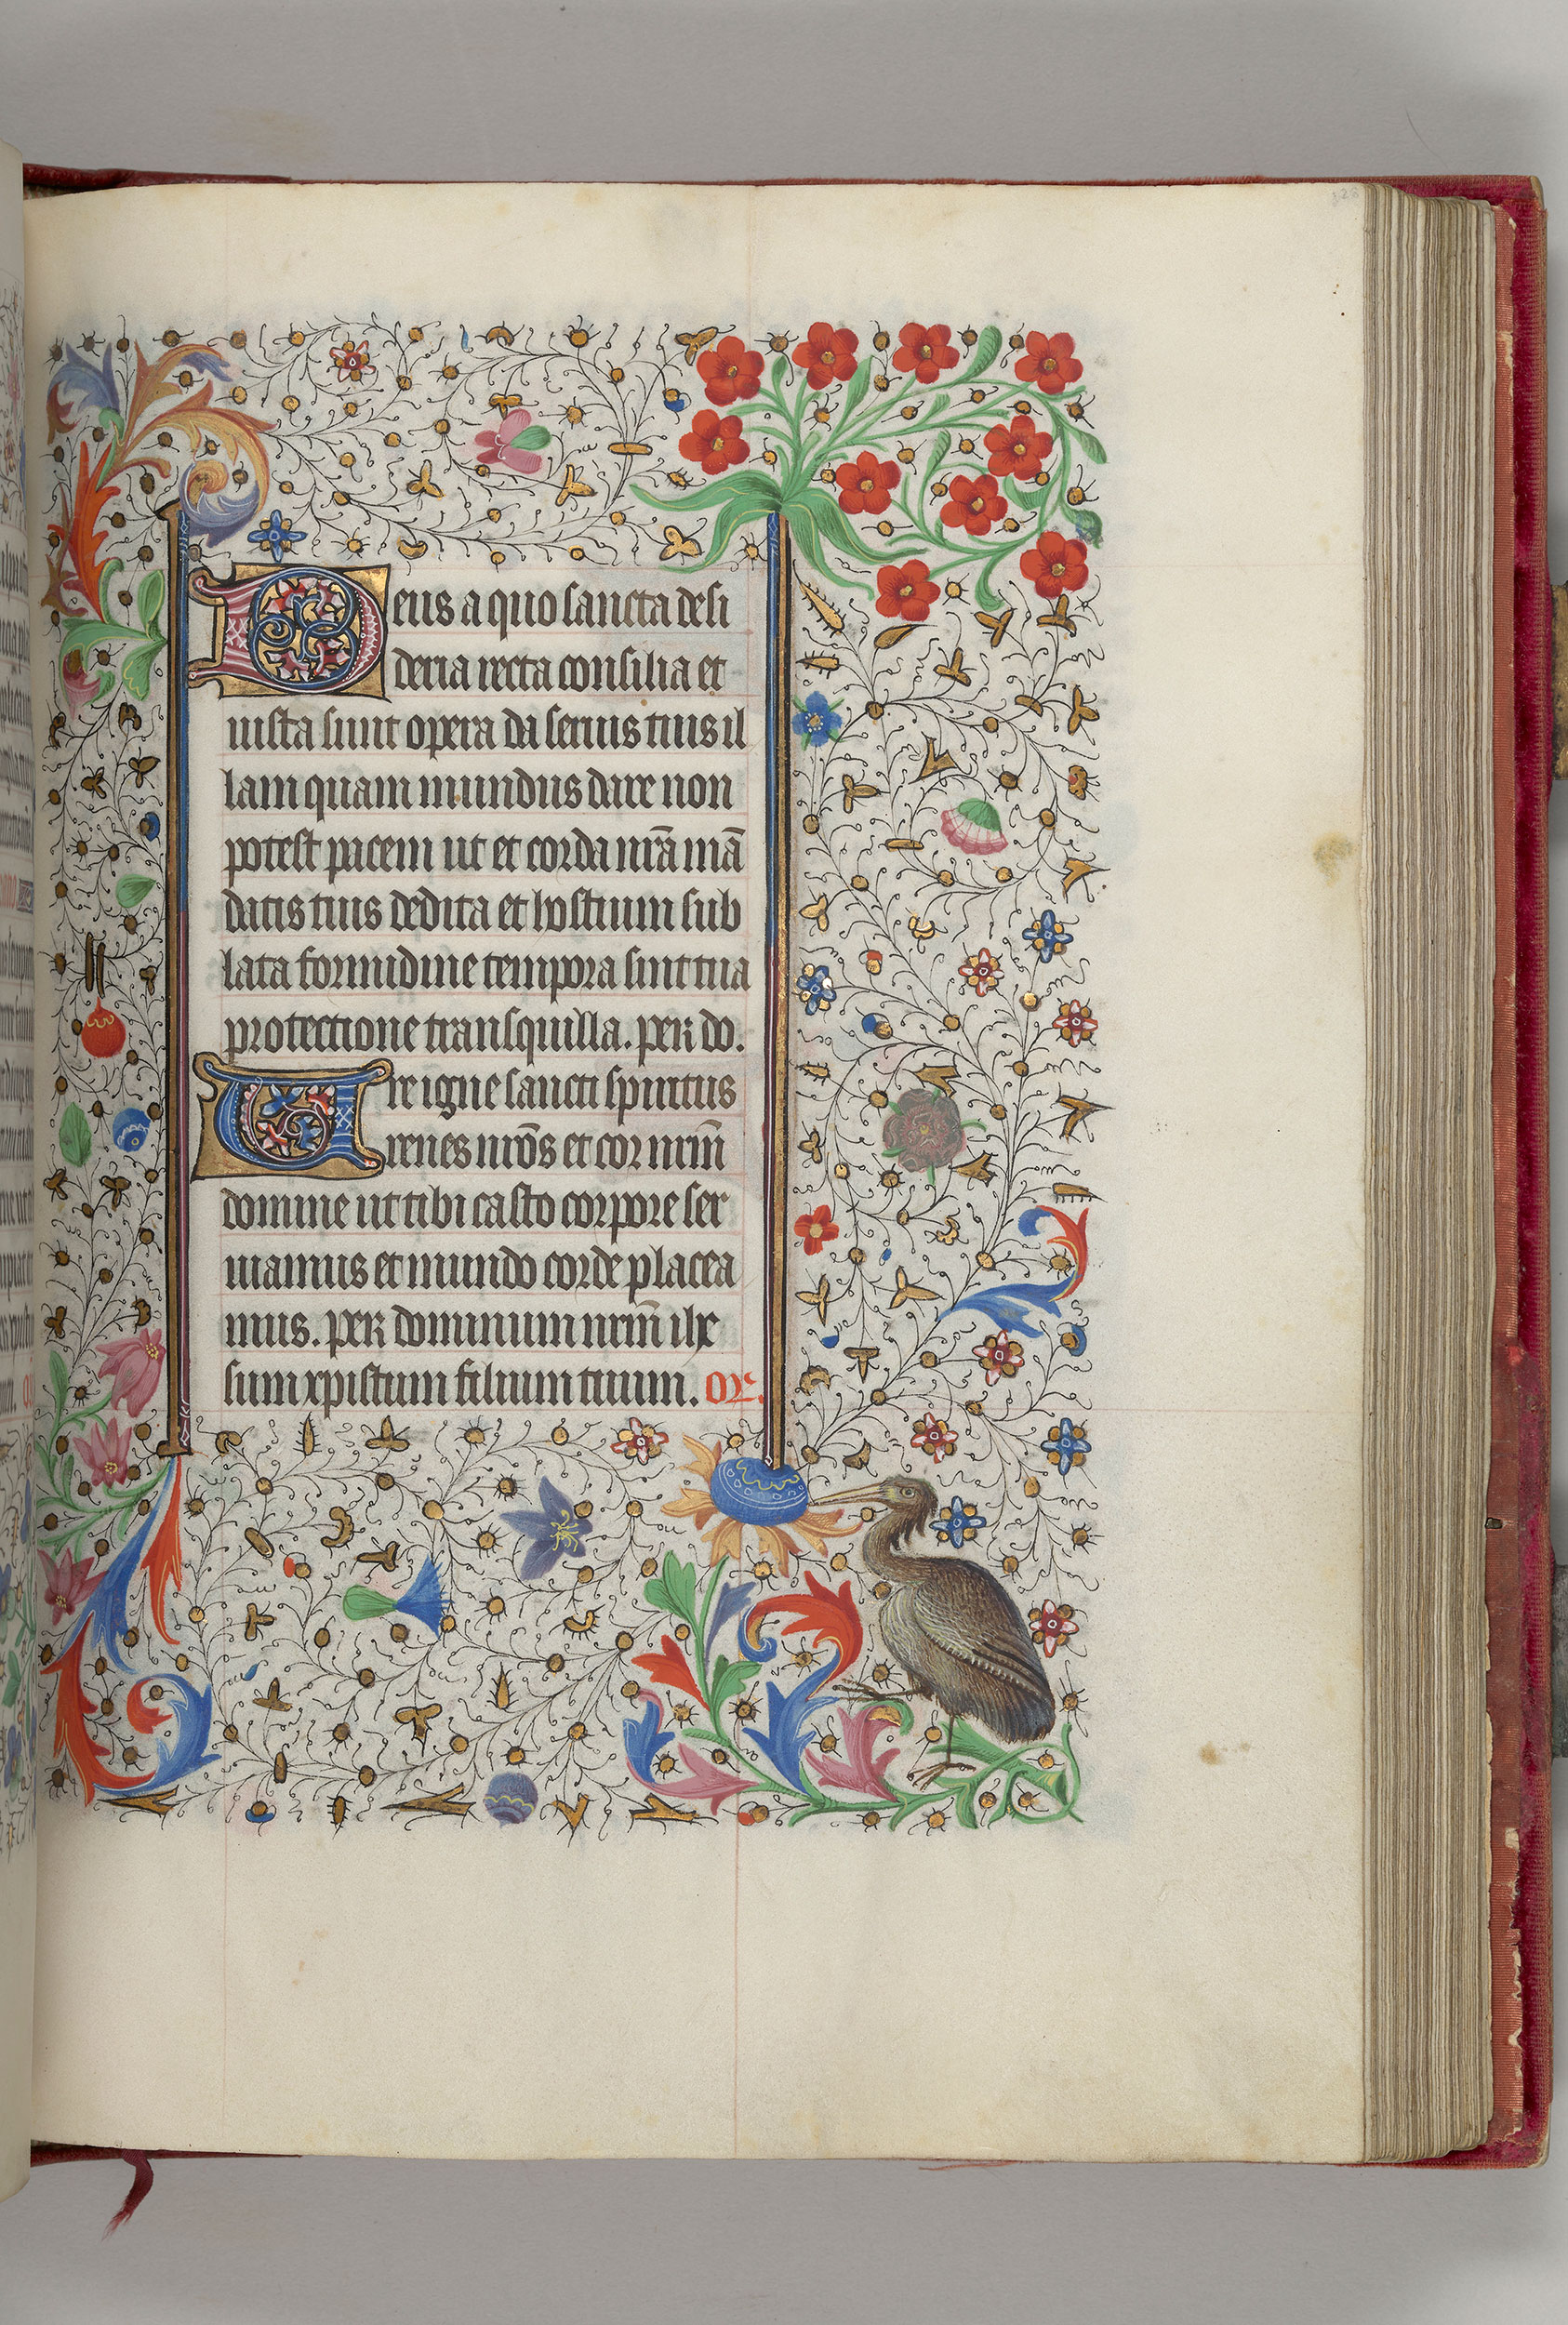 Deus a quo sancta desi
deria recta consilia et
iusta sunt opera da seruis tuis il
lam quam mundus dare non
potest pacem ut et corda nr̃a mã
datis tuis dedita et hostium sub
lata formidine tempora sint tua
protectione transquilla. per do.
Ure igne sancti spiritus
renes nrõs et cor nrm̃
domine ut tibi casto corpore ser
uiamus et mundo corde placea
mus. per dominum nrm̃ ihe
sum xpistum filium tuum. Or.